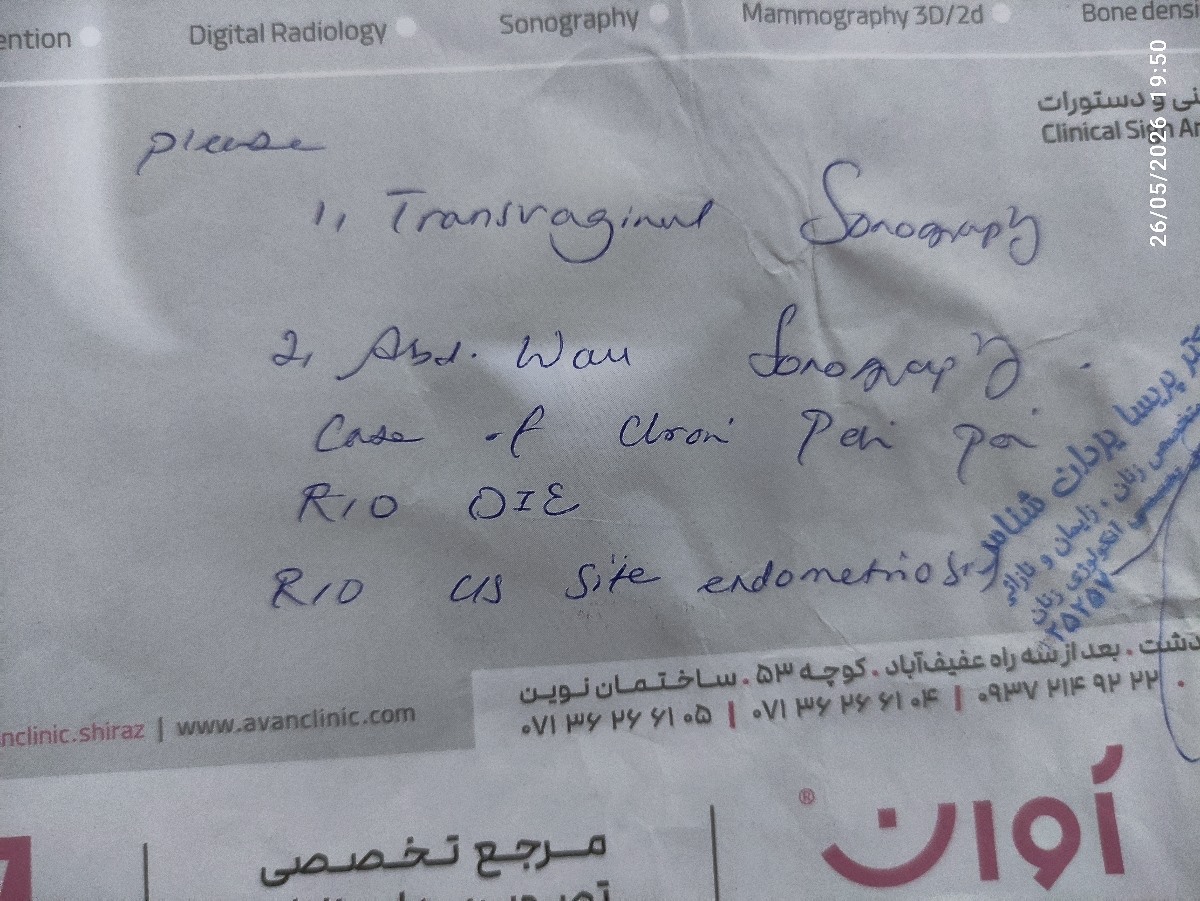 ention Digital Radiology Sonography Mammography 3D/2d Bone densi
نی و دستورات
Clinical Sign An
26/05/2026 19:50
please
1, Transvaginal Sonography
2, Abd. Wall Sonography.
Case of Chron Pelvi pai
R/O DIE
R/O CS Site endometriosis
پریسا یزدان شناس
تخصصی زنان، زایمان و نازائی
انکولوژی زنان
دشت . بعد از سه راه عفیف‌آباد . کوچه ۵۳ . ساختمان نوین
۰۷۱ ۳۶ ۲۶ ۶۱ ۰۵ | ۰۷۱ ۳۶ ۲۶ ۶۱ ۰۴ | ۰۹۳۷ ۲۱۴ ۹۲ ۲۲
nclinic.shiraz | www.avanclinic.com
آوان ®
مرجع تخصصی